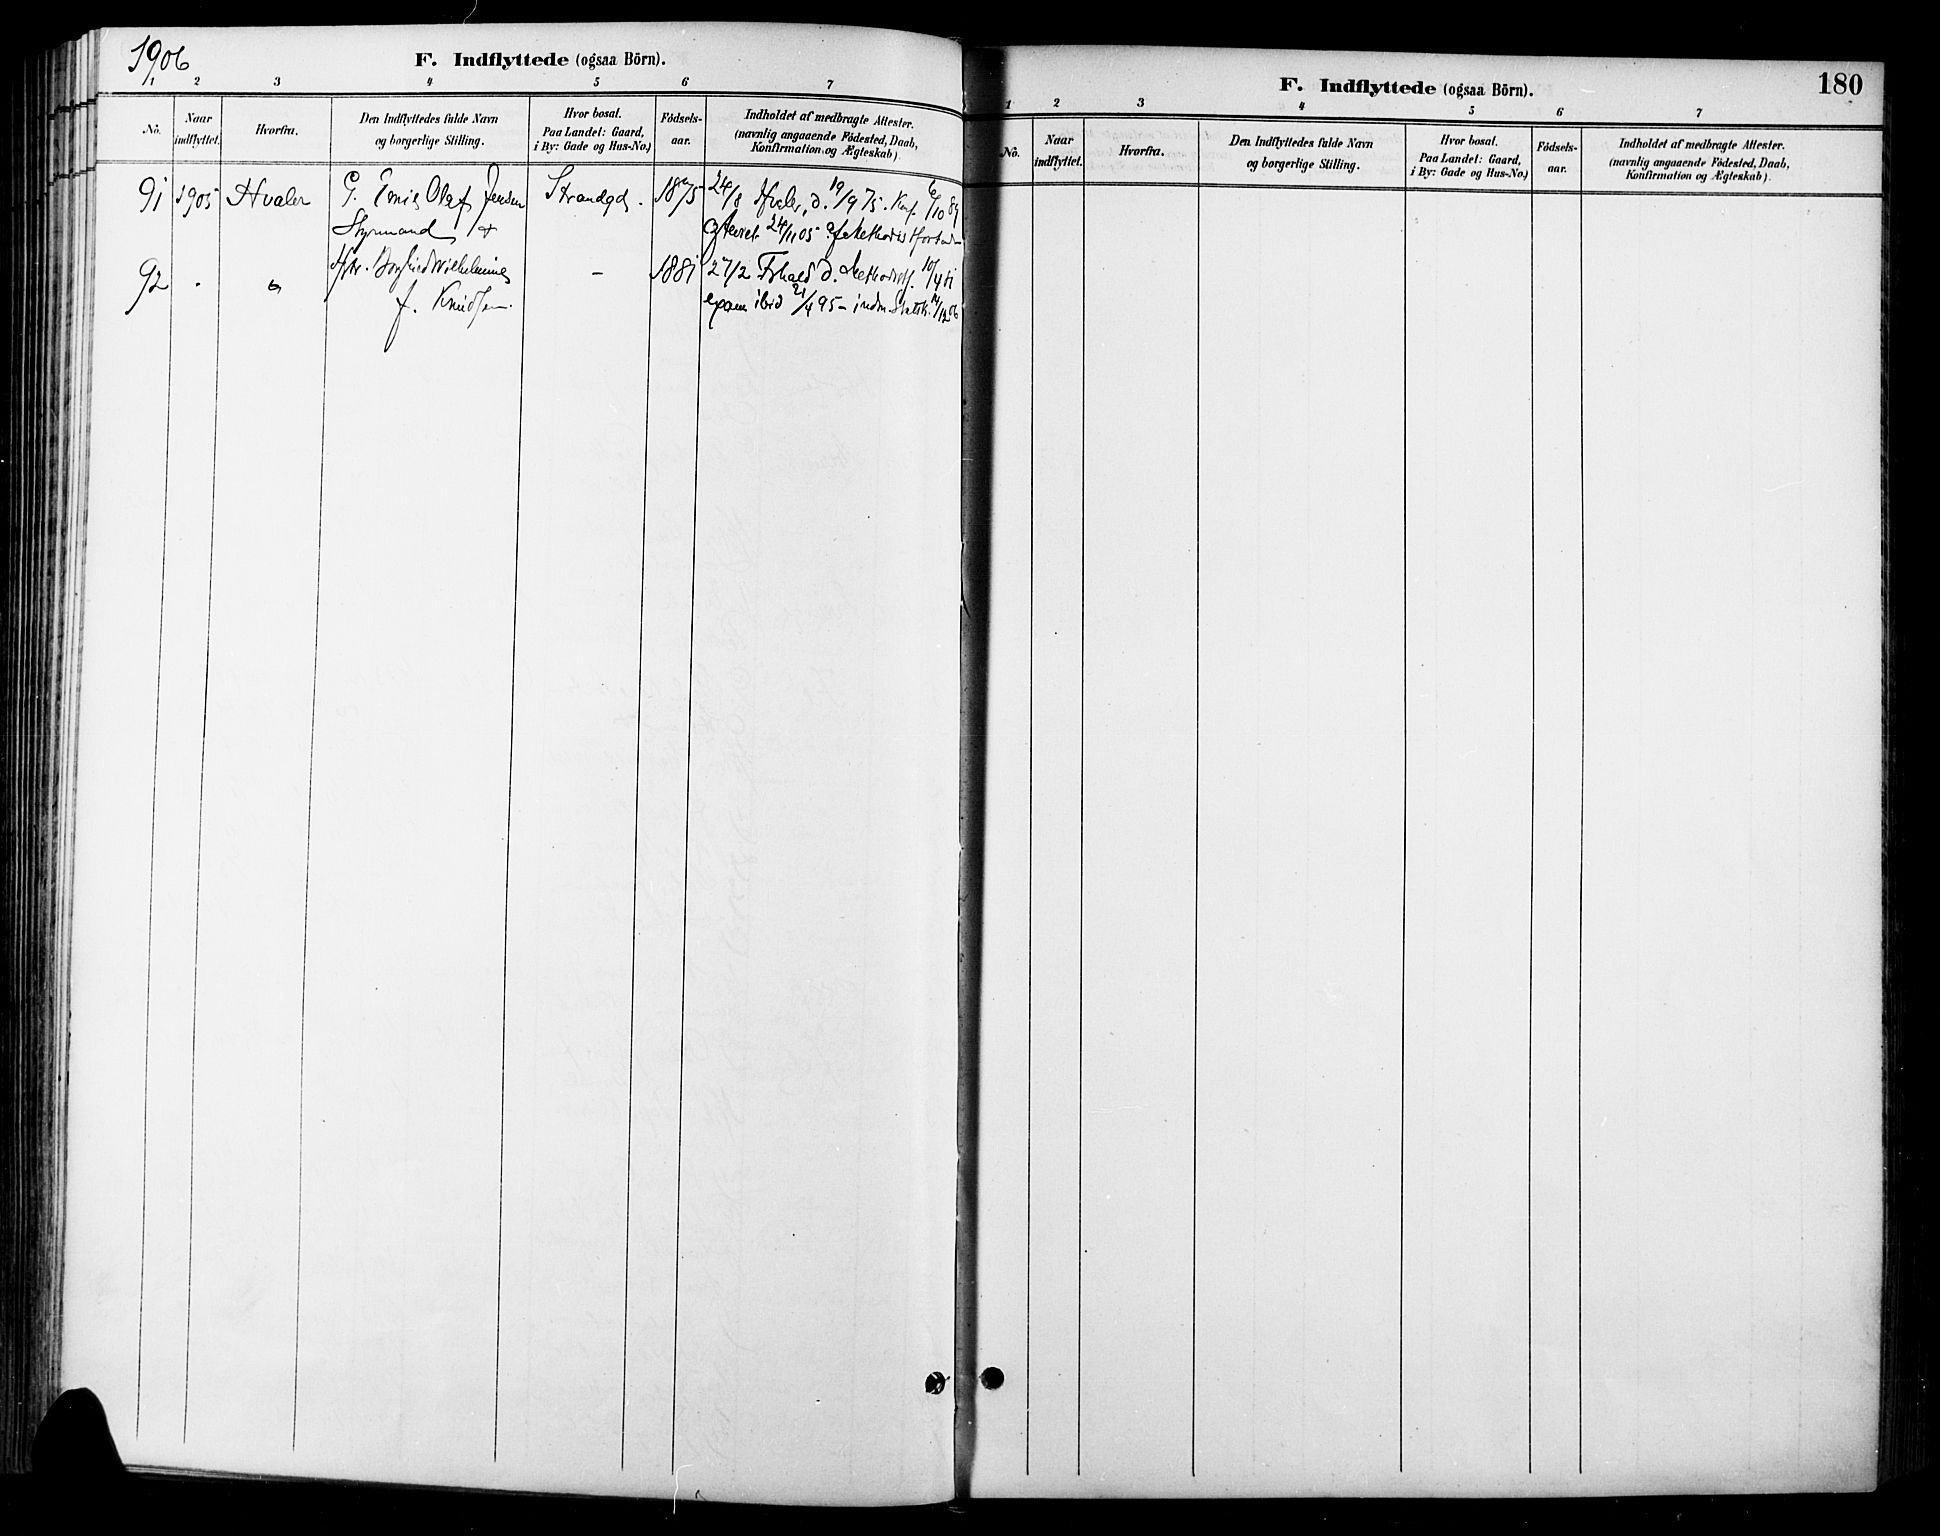 1906
F. Indflyttede (ogsaa Börn).
1 2 3 4 5 6 7
No. Naar indflyttet. Hvorfra. Den Indflyttedes fulde Navn og borgerlige Stilling. Hvor bosat. Paa Landet: Gaard, i By: Gade og Hus-No.) Födsels-aar. Indholdet af medbragte Attester. (navnlig angaaende Födested, Daab, Konfirmation og Ægteskab)
91 1905 Hvaler G. Emil Olaf Jensen Strandgd. 1875 24/8 Hvaler, d. 19/9 75. Konf. 6/10 89
Styrmand 24/11 05
92 Hstr. Wilhelmine – 1881 27/2 d. 10/4 81
f. Knudsen. ibid 21/4 95 – indm. Statsk. 14/12 06
180
F. Indflyttede (ogsaa Börn).
1 2 3 4 5 6 7
No. Naar indflyttet. Hvorfra. Den Indflyttedes fulde Navn og borgerlige Stilling. Hvor bosat. Paa Landet: Gaard, i By: Gade og Hus-No.) Födsels-aar. Indholdet af medbragte Attester. (navnlig angaaende Födested, Daab, Konfirmation og Ægteskab).